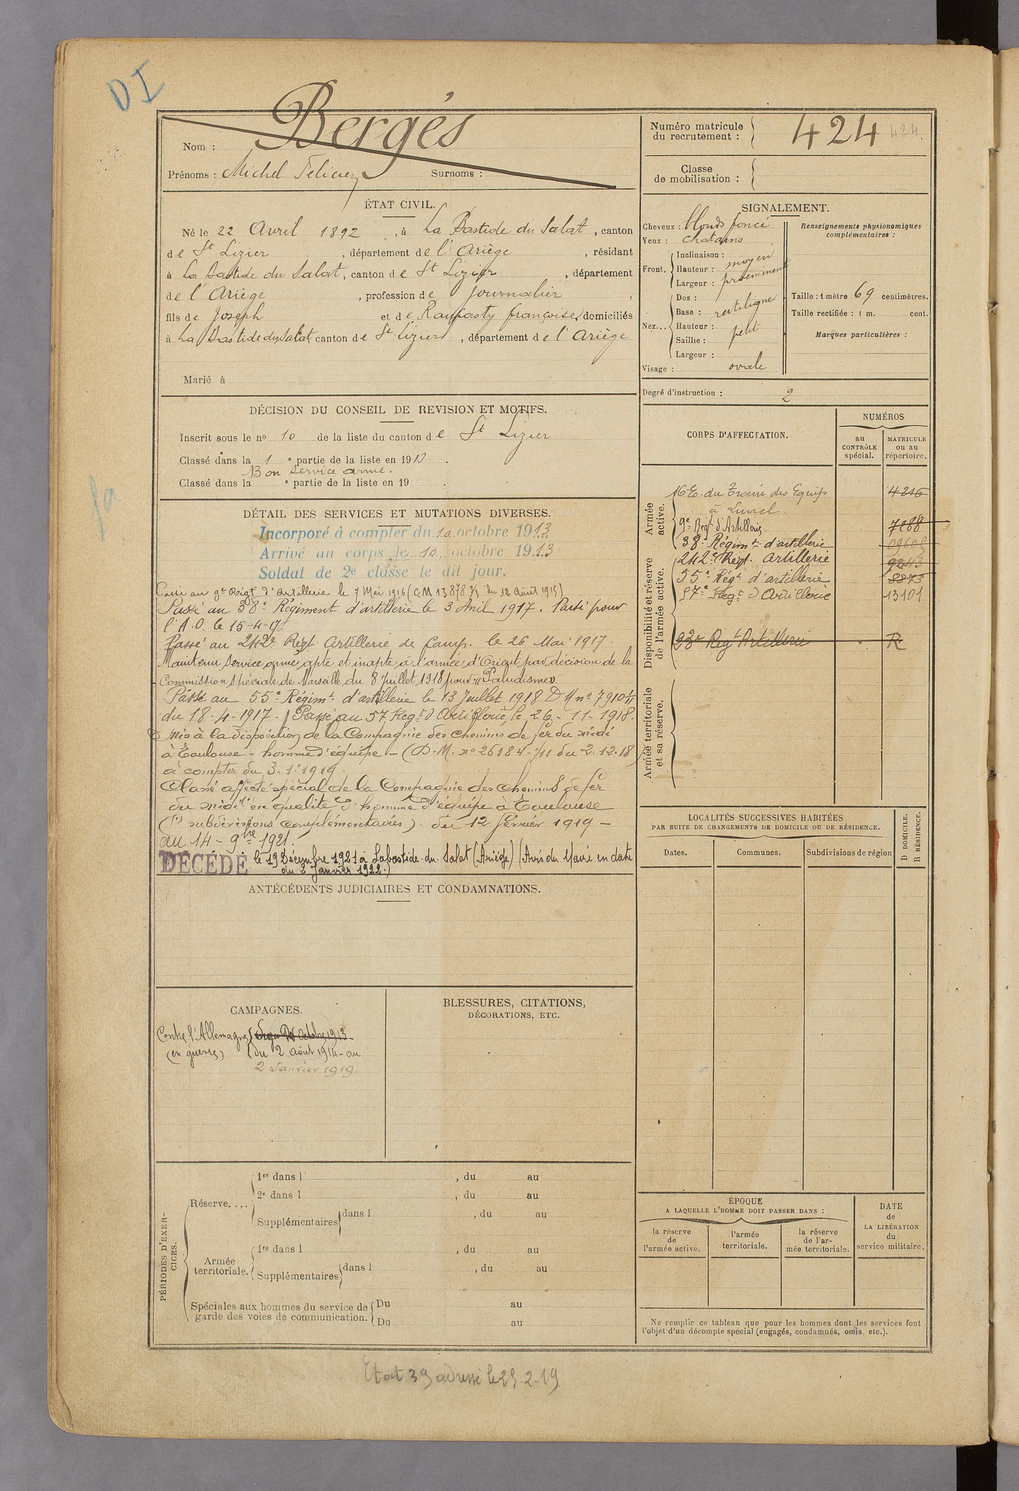 DI
Nom : Bergés
Prénoms : Michel Felicien Surnoms :
Numéro matricule du recrutement : 424 424
Classe de mobilisation :
ÉTAT CIVIL.
Né le 22 Avril 1892, à La Bastide du Salat, canton
de St Lizier, département de l'Ariège, résidant
à La Bastide du Salat, canton de St Lizier, département
de l'Ariège, profession de journalier,
fils de Joseph et de Françoise, domiciliés
à La Bastide du Salat, canton de St Lizier, département de l'Ariège
Marié à
SIGNALEMENT.
Cheveux : blonds foncé
Yeux : chatains
Front. Inclinaison : moyen
Hauteur :
Largeur : proéminent
Nez... Dos : rectiligne
Base :
Hauteur : petit
Saillie :
Largeur :
Visage : ovale
Renseignements physionomiques complémentaires :
Taille : 1 mètre 69 centimètres.
Taille rectifiée : 1 m. cent.
Marques particulières :
Degré d'instruction : 2
DÉCISION DU CONSEIL DE REVISION ET MOTIFS.
Inscrit sous le no 10 de la liste du canton de St Lizier
Classé dans la 1 e partie de la liste en 1913.
Bon service armé.
Classé dans la e partie de la liste en 19 .
DÉTAIL DES SERVICES ET MUTATIONS DIVERSES.
Incorporé à compter du 10 octobre 1913
Arrivé au corps le 10 octobre 1913
Soldat de 2e classe le dit jour.
Passé au 9e Reigt d'Artillerie le 7 Mai 1916 (C.M. 13878 du 12 Août 1915)
Passé au 38e Régiment d'artillerie le 3 Avril 1917. Parti pour
l'A.O. le 15-4-17.
Passé au 242e Régt Artillerie de Camp. le 26 Mai 1917.
Maintenu service armé, apte et inapte à l'armée d'Orient par décision de la
Commission spéciale de Marseille du 8 Juillet 1918 pour "Paludisme"
Passé au 55e Régimt d'artillerie le 13 Juillet 1918 D M no 7910
du 18-4-1917. Passé au 57 Reg. d'Artillerie le 26-11-1918.
Mis à la disposition de la Compagnie des chemins de fer du midi
à Toulouse - homme d'équipe - (D.M. no 26184-1/11 du 2.12.18)
à compter du 3.1.1919.
Classé affecté spécial de la Compagnie des Chemins de fer
du midi en qualité d'homme d'équipe à Toulouse
(subdivisions complémentaires). du 12 février 1919 -
au 14 - 9bre 1921.
DÉCÉDÉ le 19 Décembre 1921 à Labastide du Salat (Ariège) (Avis du Maire en date
du 2 Janvier 1922.)
CORPS D'AFFECTATION.
NUMÉROS
au CONTRÔLE spécial.
MATRICULE ou au répertoire.
Armée active.
16 E. du Train des Equips 4216
à Lunel
9e Regt d'Artillerie 7288
38e Régimt d'artillerie
Disponibilité et réserve de l'armée active.
242e Régt artillerie 9243
55e Régt d'artillerie
57e Regt d'Artillerie 13101
23e Regt Artillerie R
Armée territoriale et sa réserve.
LOCALITÉS SUCCESSIVES HABITÉES
PAR SUITE DE CHANGEMENTS DE DOMICILE OU DE RÉSIDENCE.
Dates. Communes. Subdivisions de région
D DOMICILE.
R RÉSIDENCE.
ANTÉCÉDENTS JUDICIAIRES ET CONDAMNATIONS.
CAMPAGNES.
Contre l'Allemagne
(en guerre) (du 2 août 1914 au
2 Janvier 1919.
BLESSURES, CITATIONS,
DÉCORATIONS, ETC.
PÉRIODES D'EXERCICES.
Réserve.... 1re dans l , du au
2e dans l , du au
Supplémentaires dans l , du au
Armée territoriale. 1re dans l , du au
Supplémentaires dans l , du au
Spéciales aux hommes du service de garde des voies de communication. Du au
Du au
ÉPOQUE
A LAQUELLE L'HOMME DOIT PASSER DANS :
la réserve de l'armée active.
l'armée territoriale.
la réserve de l'armée territoriale.
DATE de LA LIBÉRATION du service militaire.
Ne remplir ce tableau que pour les hommes dont les services font
l'objet d'un décompte spécial (engagés, condamnés, omis, etc.).
Etat 39 adressé le 25-2-19